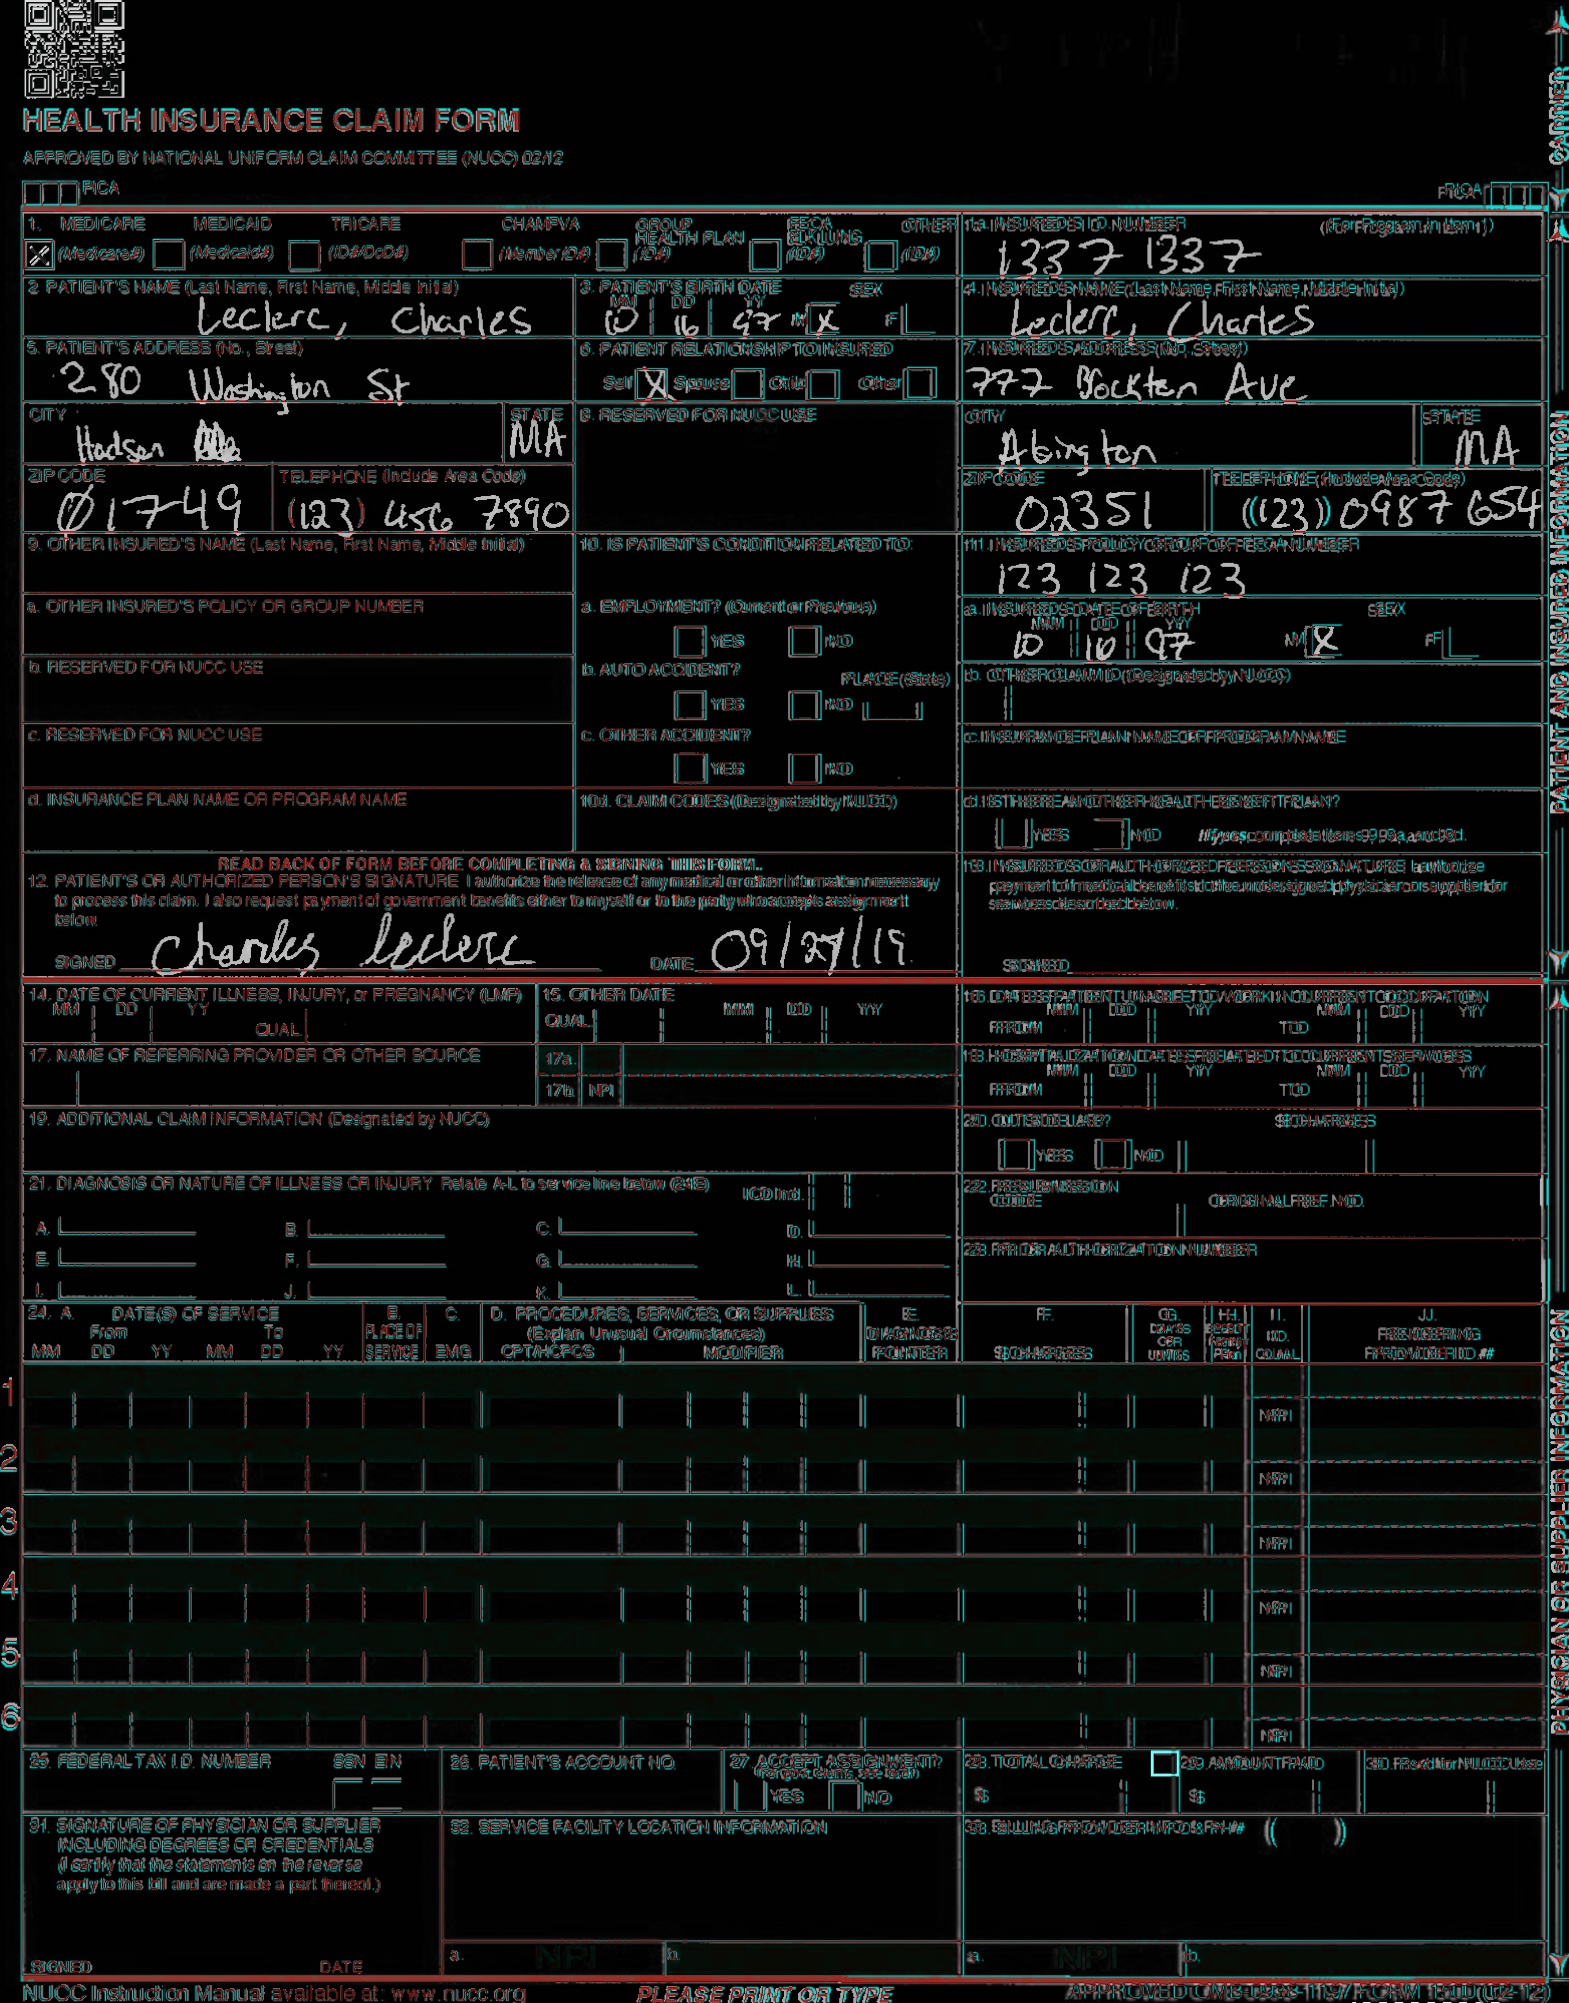 HEALTH INSURANCE CLAIM FORM
APPROVED BY NATIONAL UNIFORM CLAIM COMMITTEE (NUCC) 02/12
PICA
PICA
CARRIER
1. MEDICARE MEDICAID TRICARE CHAMPVA GROUP HEALTH PLAN FECA BLK LUNG OTHER
(Medicare#) (Medicaid#) (ID#/DoD#) (Member ID#) (ID#) (ID#) (ID#)
1a. INSURED'S I.D. NUMBER (For Program in Item 1)
1337 1337
2. PATIENT'S NAME (Last Name, First Name, Middle Initial)
Leclerc, Charles
3. PATIENT'S BIRTH DATE SEX
MM DD YY
10 16 97 M X F
4. INSURED'S NAME (Last Name, First Name, Middle Initial)
Leclerc, Charles
5. PATIENT'S ADDRESS (No., Street)
280 Washington St
6. PATIENT RELATIONSHIP TO INSURED
Self X Spouse Child Other
7. INSURED'S ADDRESS (No., Street)
777 Brockton Ave
CITY
Hudson
STATE
MA
8. RESERVED FOR NUCC USE
CITY
Abington
STATE
MA
ZIP CODE
01749
TELEPHONE (Include Area Code)
(123) 456 7890
ZIP CODE
02351
TELEPHONE (Include Area Code)
(123) 0987 654
9. OTHER INSURED'S NAME (Last Name, First Name, Middle Initial)
10. IS PATIENT'S CONDITION RELATED TO:
11. INSURED'S POLICY GROUP OR FECA NUMBER
123 123 123
a. OTHER INSURED'S POLICY OR GROUP NUMBER
a. EMPLOYMENT? (Current or Previous)
YES NO
a. INSURED'S DATE OF BIRTH SEX
MM DD YY
10 16 97 M X F
b. RESERVED FOR NUCC USE
b. AUTO ACCIDENT? PLACE (State)
YES NO
b. OTHER CLAIM ID (Designated by NUCC)
c. RESERVED FOR NUCC USE
c. OTHER ACCIDENT?
YES NO
c. INSURANCE PLAN NAME OR PROGRAM NAME
d. INSURANCE PLAN NAME OR PROGRAM NAME
10d. CLAIM CODES (Designated by NUCC)
d. IS THERE ANOTHER HEALTH BENEFIT PLAN?
YES NO If yes, complete items 9, 9a, and 9d.
PATIENT AND INSURED INFORMATION
READ BACK OF FORM BEFORE COMPLETING & SIGNING THIS FORM.
12. PATIENT'S OR AUTHORIZED PERSON'S SIGNATURE I authorize the release of any medical or other information necessary
to process this claim. I also request payment of government benefits either to myself or to the party who accepts assignment
below.
SIGNED Charles Leclerc DATE 09/27/19
13. INSURED'S OR AUTHORIZED PERSON'S SIGNATURE I authorize
payment of medical benefits to the undersigned physician or supplier for
services described below.
SIGNED
14. DATE OF CURRENT ILLNESS, INJURY, or PREGNANCY (LMP)
MM DD YY
QUAL.
15. OTHER DATE
QUAL. MM DD YY
16. DATES PATIENT UNABLE TO WORK IN CURRENT OCCUPATION
MM DD YY MM DD YY
FROM TO
17. NAME OF REFERRING PROVIDER OR OTHER SOURCE
17a.
17b. NPI
18. HOSPITALIZATION DATES RELATED TO CURRENT SERVICES
MM DD YY MM DD YY
FROM TO
19. ADDITIONAL CLAIM INFORMATION (Designated by NUCC)
20. OUTSIDE LAB? $ CHARGES
YES NO
21. DIAGNOSIS OR NATURE OF ILLNESS OR INJURY Relate A-L to service line below (24E)
ICD Ind.
A. B. C. D.
E. F. G. H.
I. J. K. L.
22. RESUBMISSION
CODE ORIGINAL REF. NO.
23. PRIOR AUTHORIZATION NUMBER
24. A. DATE(S) OF SERVICE
From To
MM DD YY MM DD YY
B.
PLACE OF
SERVICE
C.
EMG
D. PROCEDURES, SERVICES, OR SUPPLIES
(Explain Unusual Circumstances)
CPT/HCPCS MODIFIER
E.
DIAGNOSIS
POINTER
F.
$ CHARGES
G.
DAYS
OR
UNITS
H.
EPSDT
Family
Plan
I.
ID.
QUAL.
J.
RENDERING
PROVIDER ID. #
1
NPI
2
NPI
3
NPI
4
NPI
5
NPI
6
NPI
PHYSICIAN OR SUPPLIER INFORMATION
25. FEDERAL TAX I.D. NUMBER SSN EIN
26. PATIENT'S ACCOUNT NO.
27. ACCEPT ASSIGNMENT?
(For govt. claims, see back)
YES NO
28. TOTAL CHARGE
$
29. AMOUNT PAID
$
30. Rsvd for NUCC Use
31. SIGNATURE OF PHYSICIAN OR SUPPLIER
INCLUDING DEGREES OR CREDENTIALS
(I certify that the statements on the reverse
apply to this bill and are made a part thereof.)
SIGNED DATE
32. SERVICE FACILITY LOCATION INFORMATION
a. NPI b.
33. BILLING PROVIDER INFO & PH # ( )
a. NPI b.
NUCC Instruction Manual available at: www.nucc.org
PLEASE PRINT OR TYPE
APPROVED OMB-0938-1197 FORM 1500 (02-12)